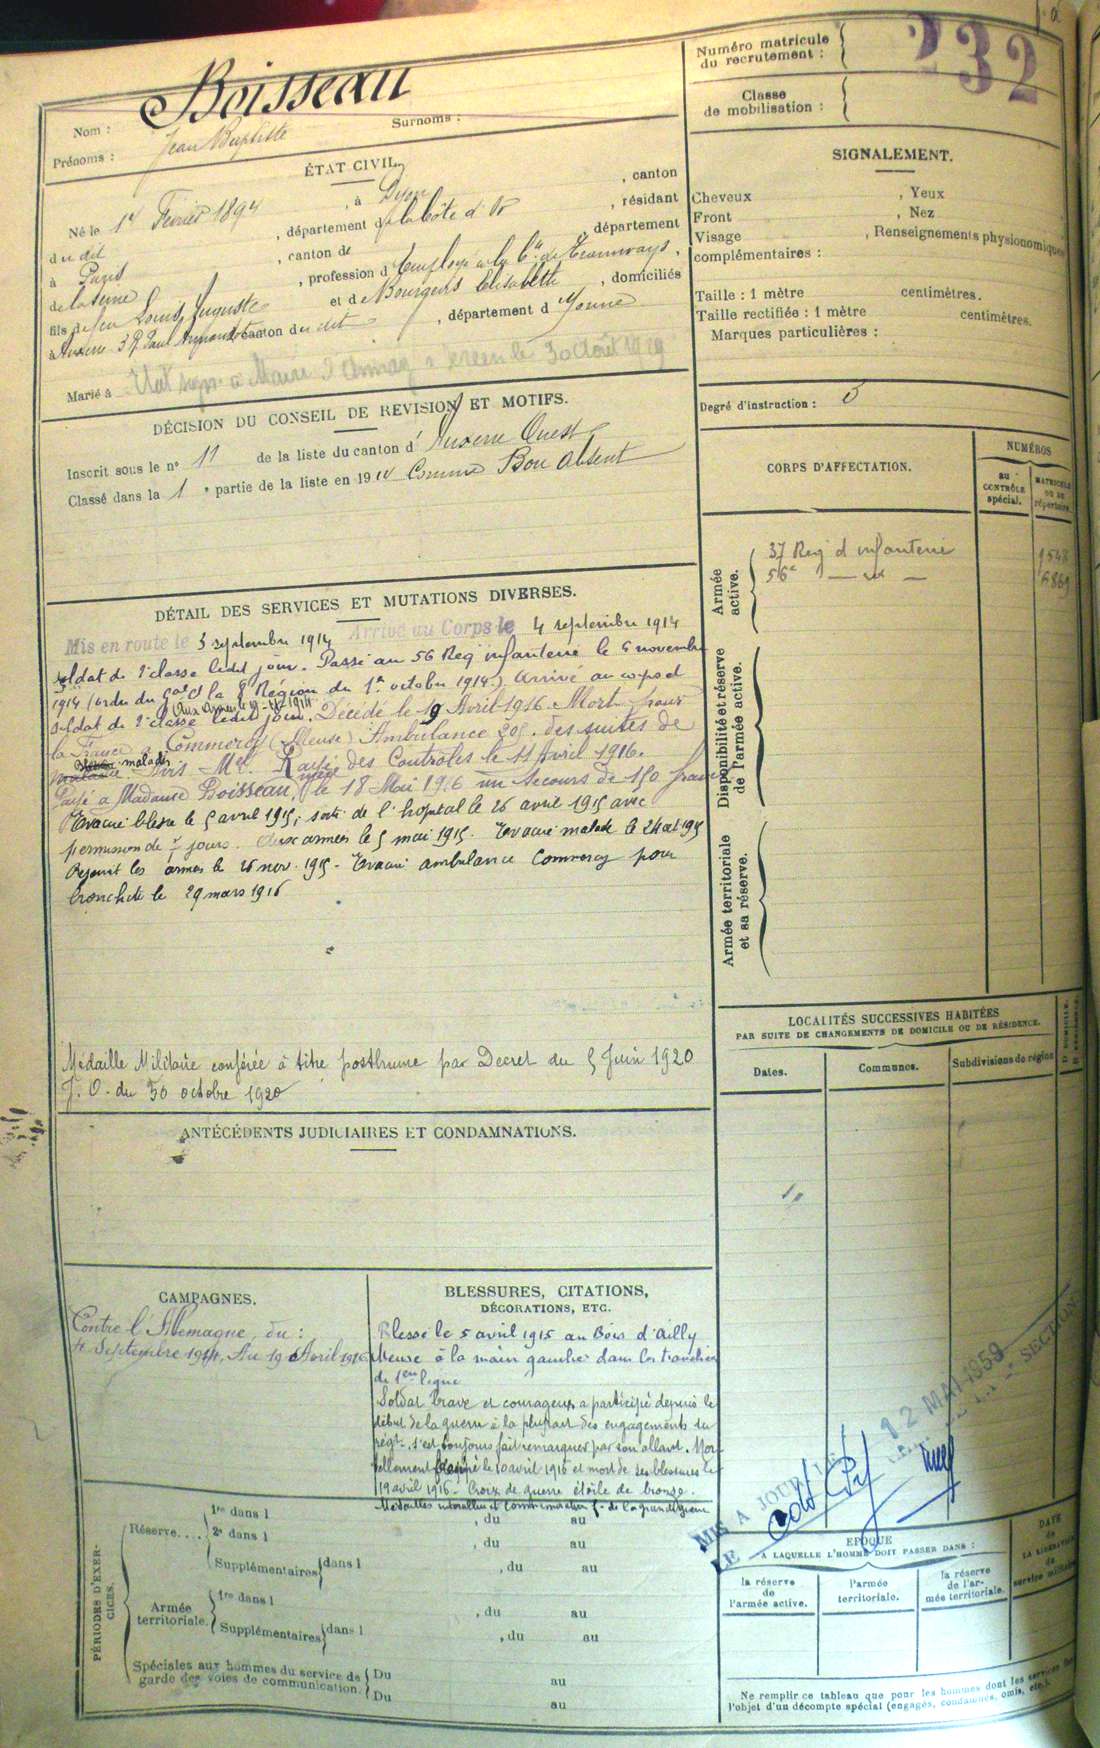 Numéro matricule
du recrutement :
232
Classe
de mobilisation :
Nom :
Boisseau
Prénoms :
Jean Baptiste
Surnoms :
ÉTAT CIVIL.
Né le 1er Février 1894, à Dijon, canton
du dit, département de la Côte d'Or, résidant
à Paris, canton de, département
de la Seine, profession d'Employé à la Cie de Tramways,
fils de feu Louis, Auguste et de Bourgeois Elisabeth, domiciliés
à Auxerre 3 R. Paul canton du dit, département d Yonne
Marié à
30 Août 1929
DÉCISION DU CONSEIL DE REVISION ET MOTIFS.
Inscrit sous le n° 11 de la liste du canton d'Auxerre Ouest
Classé dans la 1e partie de la liste en 1914 Comme Bon absent
DÉTAIL DES SERVICES ET MUTATIONS DIVERSES.
Mis en route le 3 septembre 1914 Arrivé au Corps le 4 septembre 1914
soldat de 2e classe ledit jour. Passé au 56 Reg infanterie le 6 novembre
1914 (ordre du Gal Ct la 8e Région du 1er octobre 1914.) Arrivé au corps et
soldat de 2e classe ledit jour. Décédé le 19 Avril 1916 Mort pour
la France à Commercy (Meuse) Ambulance 205. des suites de
maladie Avis Mel. Rayé des Controles le 11 Avril 1916.
Payé a Madame Boisseau, mère le 18 Mai 1916 un Secours de 150 francs
Evacué blessé le 5 avril 1915, sorti de l'hopital le 26 avril 1915 avec
permission de 7 jours. Aux armées le 5 mai 1915. Evacué malade le 24 oct 1915
Rejoint les armées le 26 nov. 1915 - Evacué ambulance Commercy pour
bronchite le 29 mars 1916
Médaille Militaire conférée à titre posthume par Decret du 5 Juin 1920
J. O. du 30 octobre 1920
ANTÉCÉDENTS JUDICIAIRES ET CONDAMNATIONS.
CAMPAGNES.
Contre l'Allemagne, du :
4 Septembre 1914, Au 19 Avril 1916
BLESSURES, CITATIONS,
DÉCORATIONS, ETC.
Blessé le 5 avril 1915 au Bois d'Ailly
Meuse à la main gauche dans les tranchées
de 1ere ligne
Soldat brave et courageux, a participé depuis le
début de la guerre à la plupart des engagements du
régt. s'est toujours fait remarquer par son allant. Mor-
tellement frappé le 10 avril 1916 et mort de ses blessures le
19 avril 1916 - Croix de guerre étoile de bronze.
PÉRIODES D'EXER-
CICES.
Réserve....
1re dans l , du au
2e dans l , du au
Supplémentaires dans l , du au
Armée
territoriale.
1re dans l , du au
Supplémentaires dans l , du au
Spéciales aux hommes du service de
garde des voies de communication.
Du au
Du au
SIGNALEMENT.
Cheveux , Yeux
Front , Nez
Visage , Renseignements physionomiques
complémentaires :
Taille : 1 mètre centimètres.
Taille rectifiée : 1 mètre centimètres.
Marques particulières :
Degré d'instruction : 3
CORPS D'AFFECTATION.
NUMÉROS
au
CONTRÔLE
spécial.
MATRICULE
OU AU
répertoire.
Armée
active.
37 Reg d'infanterie 1548
56e — d — 6869
Disponibilité et réserve
de l'armée active.
Armée territoriale
et sa réserve.
LOCALITÉS SUCCESSIVES HABITÉES
PAR SUITE DE CHANGEMENTS DE DOMICILE OU DE RÉSIDENCE.
Dates.
Communes.
Subdivisions de région
MIS A JOUR
LE
12 MAI 1959
SECTION
ÉPOQUE
A LAQUELLE L'HOMME DOIT PASSER DANS :
la réserve
de
l'armée active.
l'armée
territoriale.
la réserve
de l'ar-
mée territoriale.
DATE
de
LA LIBÉRATION
du
service militaire
Ne remplir ce tableau que pour les hommes dont les services
l'objet d'un décompte spécial (engagés, condamnés, omis, etc.).